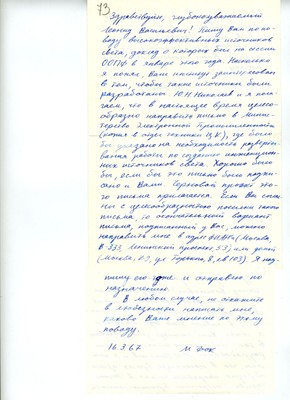 73
Здравствуйте, глубокоуважаемый
Леонид Васильевич! Пишу Вам по по-
воду высокоэффективных источников
света, доклад о которых был на сессии
ООПФ в январе этого года. Насколько
я понял, Ваш институт заинтересован
в том, чтобы такие источники были
разработаны. Ю.П. Николаев и я пола-
гаем, что в настоящее время целесо-
образно направить письмо в Минис-
терство Электронной Промышленности
(копия в отдел техники Ц.К.), где было
бы указано на необходимость разверты-
вания работы по созданию
источников света. Хорошо было
бы, если бы это письмо было подпи-
сано и Вами. Черновой проект это-
го письма прилагается. Если Вы соглас-
ны с целесообразностью посылки такого
письма, то окончательный вариант
письма, подписанный у Вас, можно
направить мне в адрес ФИАНа (Москва,
В 333, Ленинский проспект, 53) или домой
(Москва, К-9, ул. Горького, 8, кв 107). Я под-
пишу его тоже и отправлю по
назначению.
В любом случае, не откажите
в любезности написать мне,
каково Ваше мнение по этому
поводу.
16.3.67. М. Бок